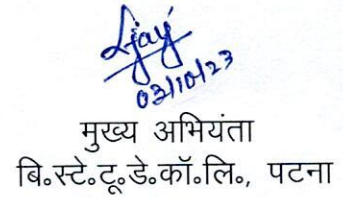 Ajay
03/10/23
मुख्य अभियंता
बि॰स्टे॰टू॰डे॰कॉ॰लि॰, पटना